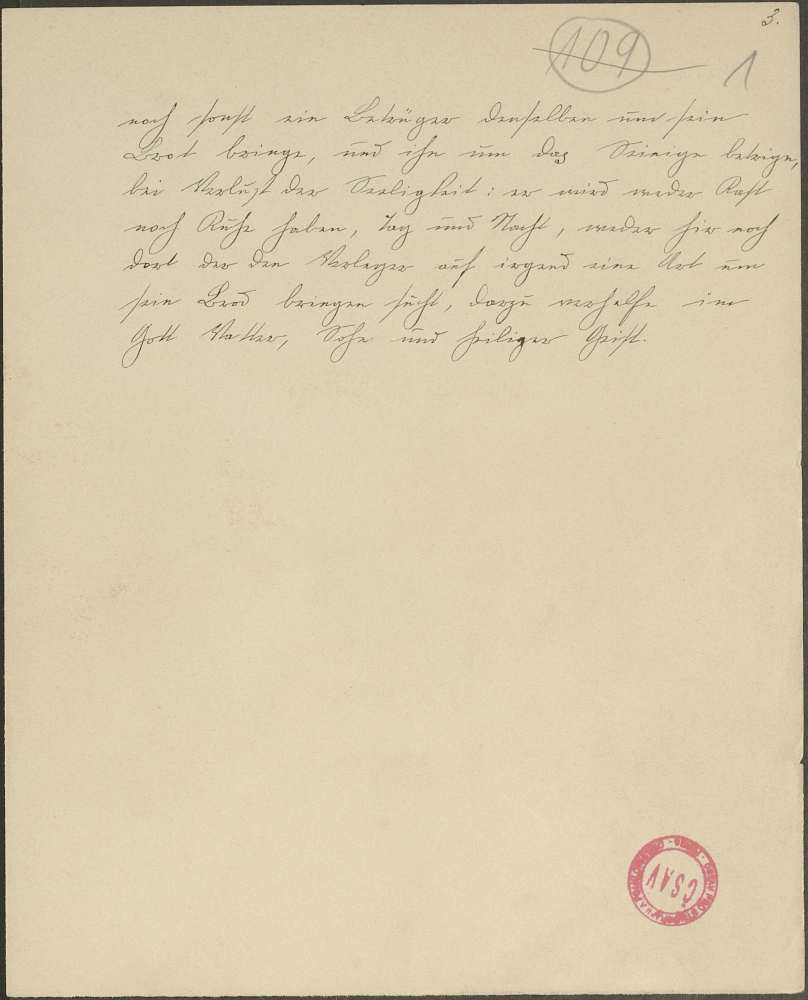 3.
109
1
noch sonst ein Betrüger denselben um sein
Brot bringe, und ihn um das Seinige betrige,
bei Verlust der Seeligkeit: er wird weder Rast
noch Ruhe haben, Tag und Nacht, weder hir noch
dort der den Verleger auf irgend eine Art um
sein Brod bringen sucht, darzu verhelfe im
Gott Vatter, Sohn und heiliger Geist.
ČSAV